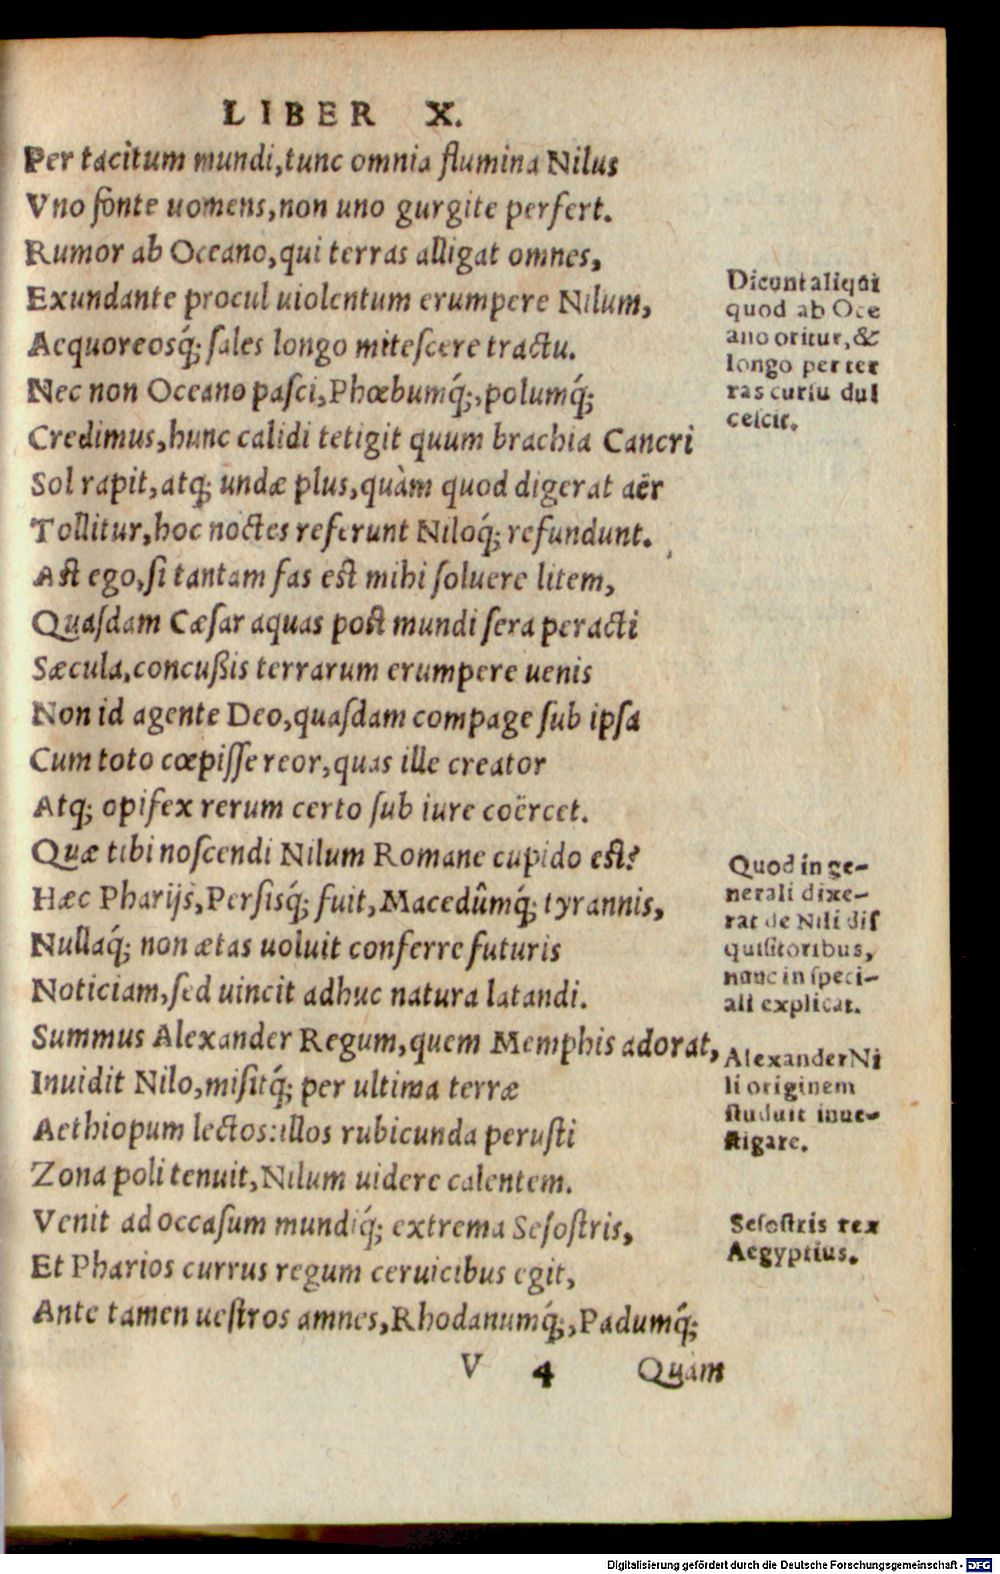 LIBER X.
Per tacitum mundi, tunc omnia flumina Nilus
Vno fonte uomens, non uno gurgite perfert.
Rumor ab Oceano, qui terras alligat omnes,
Exundante procul uiolentum erumpere Nilum,
Aequoreosq́; ſales longo miteſcere tractu.
Nec non Oceano paſci, Phœbumq́;, polumq́;
Credimus, hunc calidi tetigit quum brachia Cancri
Sol rapit, atq; undæ plus, quàm quod digerat aër
Tollitur, hoc noctes referunt Niloq́; refundunt.
Aſt ego, ſi tantam fas eſt mihi ſoluere litem,
Quaſdam Cæſar aquas poſt mundi ſera peracti
Sæcula, concuſsis terrarum erumpere uenis
Non id agente Deo, quaſdam compage ſub ipſa
Cum toto cœpiſſe reor, quas ille creator
Atq; opifex rerum certo ſub iure coërcet.
Quæ tibi noſcendi Nilum Romane cupido eſt?
Hæc Pharijs, Perſisq́; fuit, Macedûmq́; tyrannis,
Nullaq́; non ætas uoluit conferre futuris
Noticiam, ſed uincit adhuc natura latandi.
Summus Alexander Regum, quem Memphis adorat,
Inuidit Nilo, miſitq́; per ultima terræ
Aethiopum lectos: illos rubicunda peruſti
Zona poli tenuit, Nilum uidere calentem.
Venit ad occaſum mundiq́; extrema Seſoſtris,
Et Pharios currus regum ceruicibus egit,
Ante tamen ueſtros amnes, Rhodanumq́;, Padumq́;
V 4 Quàm
Dicunt aliqui
quod ab Oce
ano oritur, &
longo per ter
ras curſu dul
ceſcit.
Quod in ge-
nerali dixe-
rat de Nili diſ
quiſitoribus,
nunc in ſpeci-
ali explicat.
Alexander Ni
li originem
ſtuduit inue-
ſtigare.
Seſoſtris rex
Aegyptius.
Digitalisierung gefördert durch die Deutsche Forschungsgemeinschaft - DFG